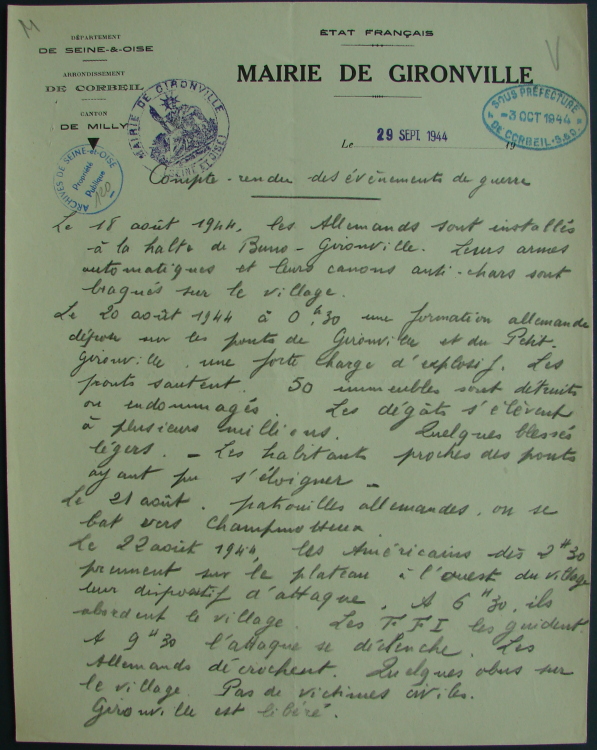 DÉPARTEMENT
DE SEINE-&-OISE
ARRONDISSEMENT
DE CORBEIL
CANTON
DE MILLY
ÉTAT FRANÇAIS
MAIRIE DE GIRONVILLE
MAIRIE DE GIRONVILLE
SOUS PRÉFECTURE
-3 OCT 1944
DE CORBEIL-S.&O.
ARCHIVES DE SEINE-et-OISE
Propriété
Publique
120
Le 29 SEPT. 1944 19
Compte-rendu des évènements de guerre
Le 18 août 1944, les Allemands sont installés
à la halte de Buno-Gironville. Leurs armes
automatiques et leurs canons anti-chars sont
braqués sur le village.
Le 20 août 1944 à 0h,30 une formation allemande
dépose sur les ponts de Gironville et du Petit-
Gironville, une forte charge d'explosif. Les
ponts sautent. 50 immeubles sont détruits
ou endommagés. Les dégâts s'élèvent
à plusieurs millions. Quelques blessés
légers. - Les habitants proches des ponts
ayant pu s'éloigner -
Le 21 août. patrouilles allemandes, on se
bat vers Champmotteux.
Le 22 août 1944, les Américains dès 2H30
prennent sur le plateau à l'ouest du village
leur dispositif d'attaque. A 6H30, ils
abordent le village. Les F F I les guident.
A 9H30 l'attaque se déclenche. Les
Allemands décrochent. Quelques obus sur
le village. Pas de victimes civiles.
Gironville est libéré.